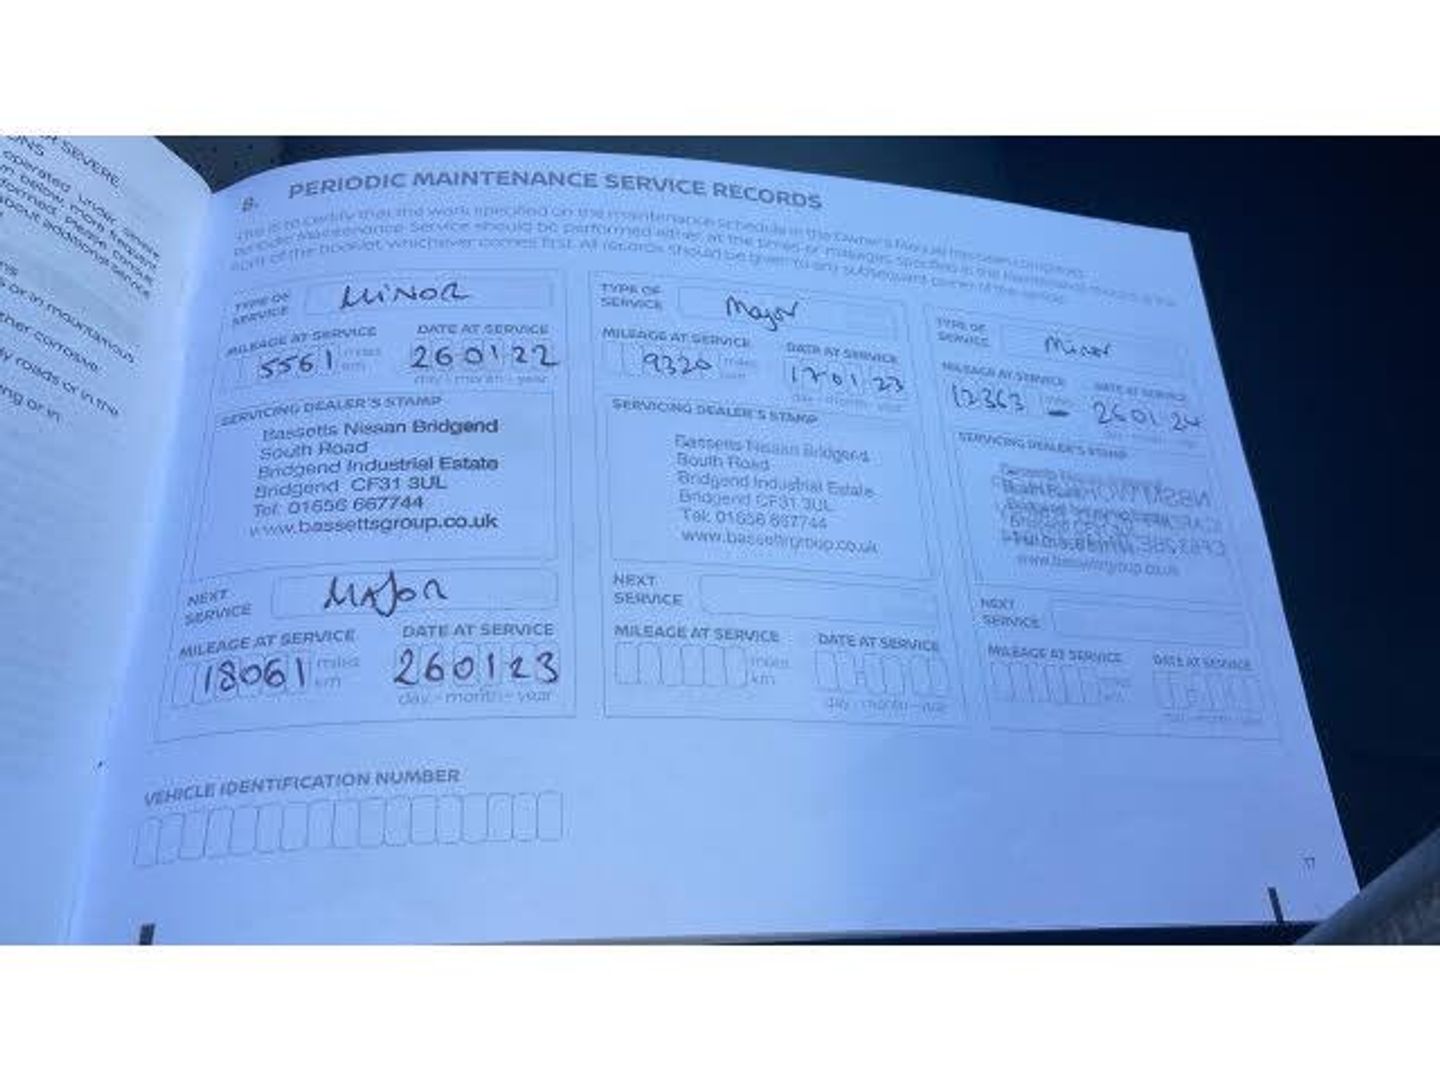 OR SEVERE
operated under severe
m below, more frequent
formed. Please consult
about additional service
s or in mountainous
ther corrosive
y roads or in the
ng or in
8. PERIODIC MAINTENANCE SERVICE RECORDS
This is to certify that the work specified on the maintenance schedule in the Owner's Manual has been completed.
Periodic Maintenance Service should be performed either at the times or mileages specified in the
front of the booklet, whichever comes first. All records should be given to any subsequent owner of the vehicle.
TYPE OF
SERVICE
MINOR
MILEAGE AT SERVICE DATE AT SERVICE
5561 miles
km
260122
day - month - year
SERVICING DEALER'S STAMP
Bassetts Nissan Bridgend
South Road
Bridgend Industrial Estate
Bridgend CF31 3UL
Tel: 01656 667744
www.bassettsgroup.co.uk
NEXT
SERVICE
MAJOR
MILEAGE AT SERVICE DATE AT SERVICE
18061 miles
km
260123
day - month - year
TYPE OF
SERVICE
Major
MILEAGE AT SERVICE DATE AT SERVICE
9320 miles
km
170123
day - month - year
SERVICING DEALER'S STAMP
Bassetts Nissan Bridgend
South Road
Bridgend Industrial Estate
Bridgend CF31 3UL
Tel: 01656 667744
www.bassettsgroup.co.uk
NEXT
SERVICE
MILEAGE AT SERVICE DATE AT SERVICE
miles
km
day - month - year
TYPE OF
SERVICE
Minor
MILEAGE AT SERVICE DATE AT SERVICE
12363 -
260124
SERVICING DEALER'S STAMP
www.bassettsgroup.co.uk
NEXT
SERVICE
MILEAGE AT SERVICE DATE AT SERVICE
miles
km
day - month - year
VEHICLE IDENTIFICATION NUMBER
17